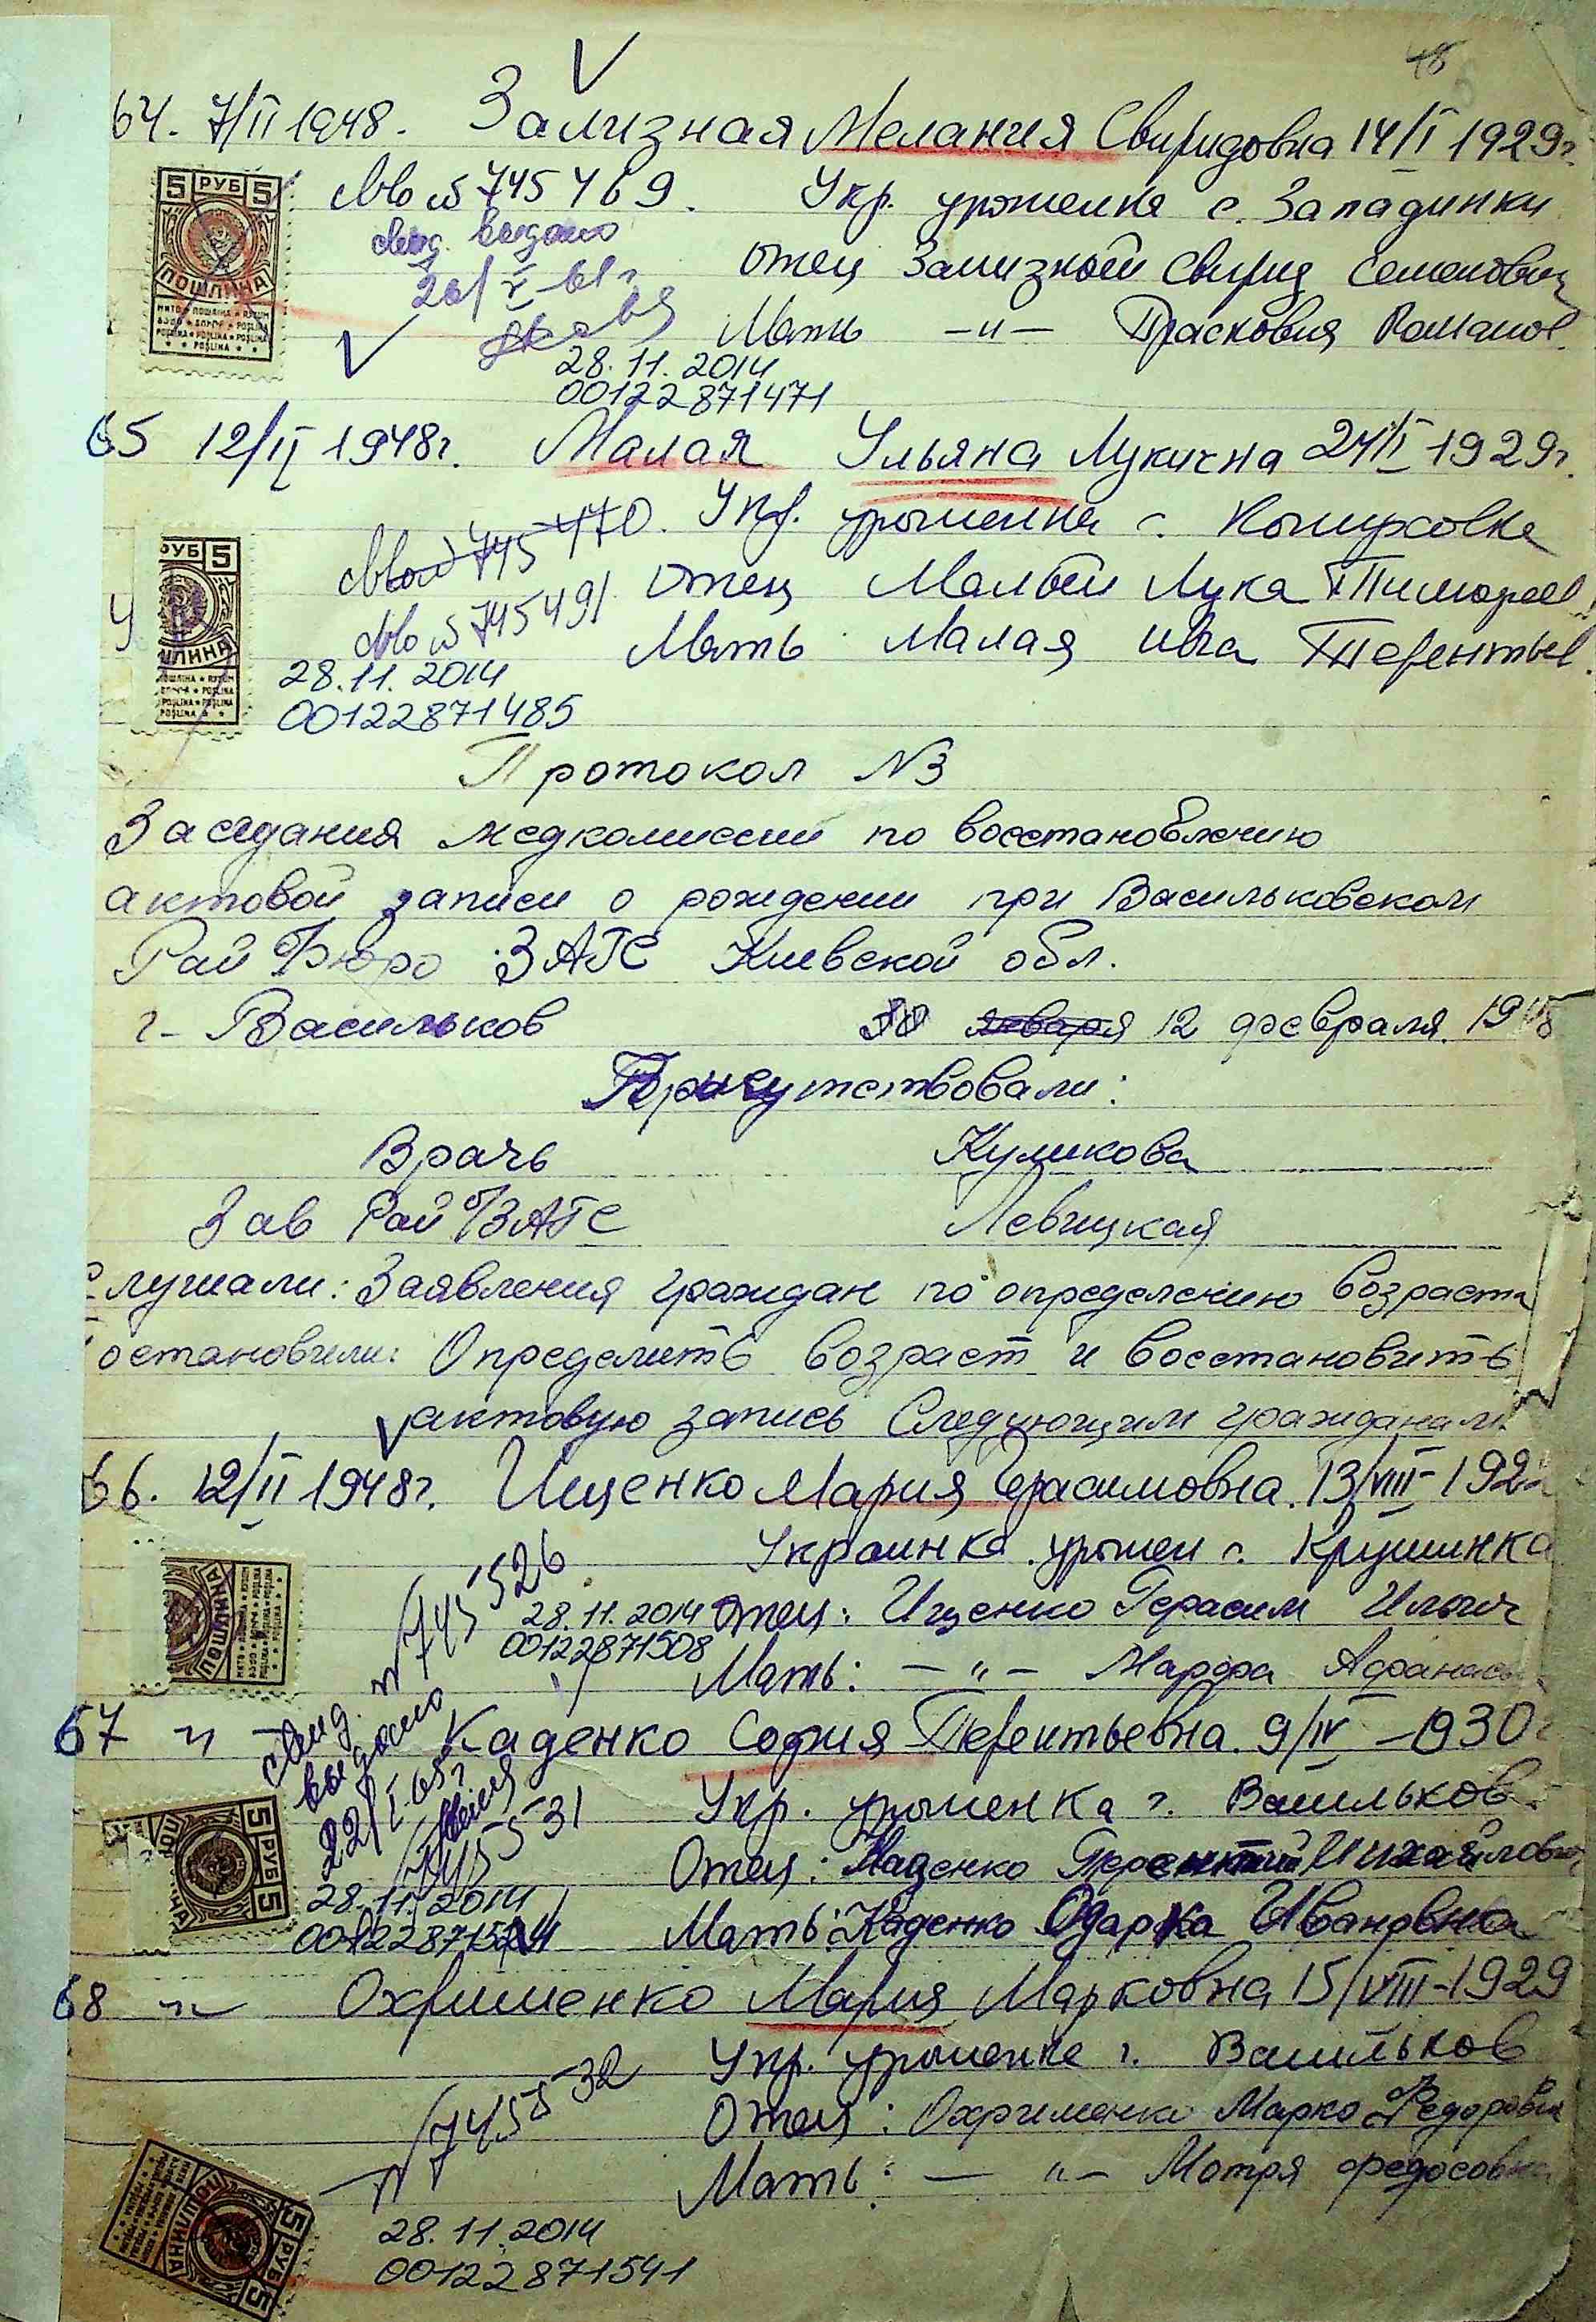 48
64. 7/II 1948. Зализная Мелания Свиридовна 14/I 1929г.
5 РУБ 5
ПОШЛИНА
св во № 745469. Укр. уроженка с. Западинки
свид. выдано
отец Зализной Свирид Семенович
20/V-61г.
Мать —„— Прасковия Роман
28.11.2014
00122871471
65 12/II 1948г. Малая Ульяна Лукична 24/II 1929г.
РУБ 5
св во № 745470. Укр. уроженка с.
отец Малый Лука Тимофее
св во № 745491
Мать Малая Терентьев
28.11.2014
00122871485
Протокол N3
Заседания медкомиссии по восстановлению
актовой записи о рождении при Васильковском
Рай Бюро ЗАГС Киевской обл.
г- Васильков 30 января 12 февраля. 1948
Присутствовали:
Врачь Куликова
Зав Рай б/ЗАГС Левицкая
Слушали: Заявления граждан по определению возраста
Постановили: Определить возраст и восстановить
актовую запись Следующим гражданам.
66. 12/II 1948г. Ищенко Мария Герасимовна. 13/VIII-192
Украинка. урожен с. Крушинка
№745526
28.11.2014 Отец: Ищенко Герасим Ильич
00122871508
Мать: —„— Марфа Афанась
67 " Каденко София Терентьевна. 9/IV-1930г
свид. выдано
22/I-65г
5 РУБ 5
Укр. уроженка г. Васильков
745531
Отец: Каденко Терентий Михайлови
28.11.2014
Мать: Каденко Одарка Ивановна
68 —"— Охрименко Мария Марковна 15/VIII-1929
Укр. уроженка г. Васильков
№745532
Отец: Охрименко Марко Федорович
Мать: — „— Мотря Федосовна
5 РУБ 5
ПОШЛИНА
28.11.2014
00122871541